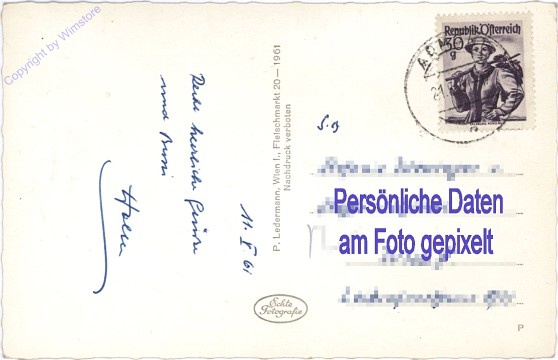 Copyright by Wimstore
Recht herzliche Grüße
und Bussi
11. V 61
P. Ledermann, Wien I., Fleischmarkt 20—1961
Nachdruck verboten
Echte
Fotografie
Republik Österreich
30
g
ADM
21.
Persönliche Daten
am Foto gepixelt
P